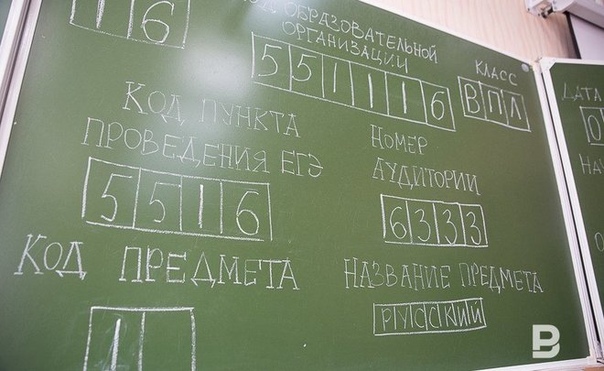 16
ОБРАЗОВАТЕЛЬНОЙ
ОРГАНИЗАЦИИ
551116
КЛАСС
ВПЛ
КОД ПУНКТА
ПРОВЕДЕНИЯ ЕГЭ
5516
НОМЕР
АУДИТОРИИ
6333
КОД ПРЕДМЕТА
1
НАЗВАНИЕ ПРЕДМЕТА
РУССКИЙ
ДАТА
0
В